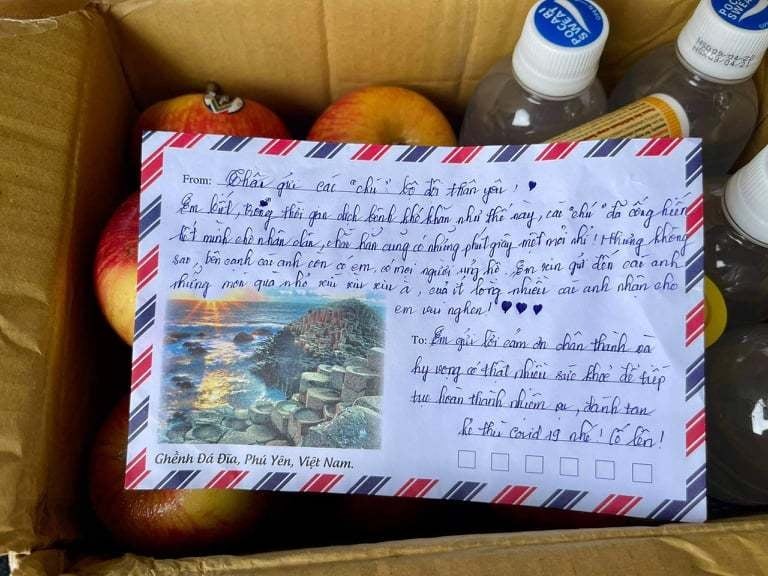 POCARI SWEAT
POCARI SWEAT
From: Thân gửi các "chú" bộ đội thân yêu! ♥
Em biết, trong thời gian dịch bệnh khó khăn như thế này, các "chú" đã cống hiến
hết mình cho nhân dân, chắc hẳn cũng có những phút giây mệt mỏi nhỉ! Nhưng không
sao, bên cạnh các anh còn có em, có mọi người ủng hộ. Em xin gửi đến các anh
những món quà nhỏ xíu xiu xiu ạ, của ít lòng nhiều các anh nhận cho
em vui nghen! ♥♥♥
To: Em gửi lời cám ơn chân thành và
hy vọng có thật nhiều sức khoẻ để tiếp
tục hoàn thành nhiệm vụ, đánh tan
kẻ thù covid 19 nhé! Cố lên!
Ghềnh Đá Đĩa, Phú Yên, Việt Nam.